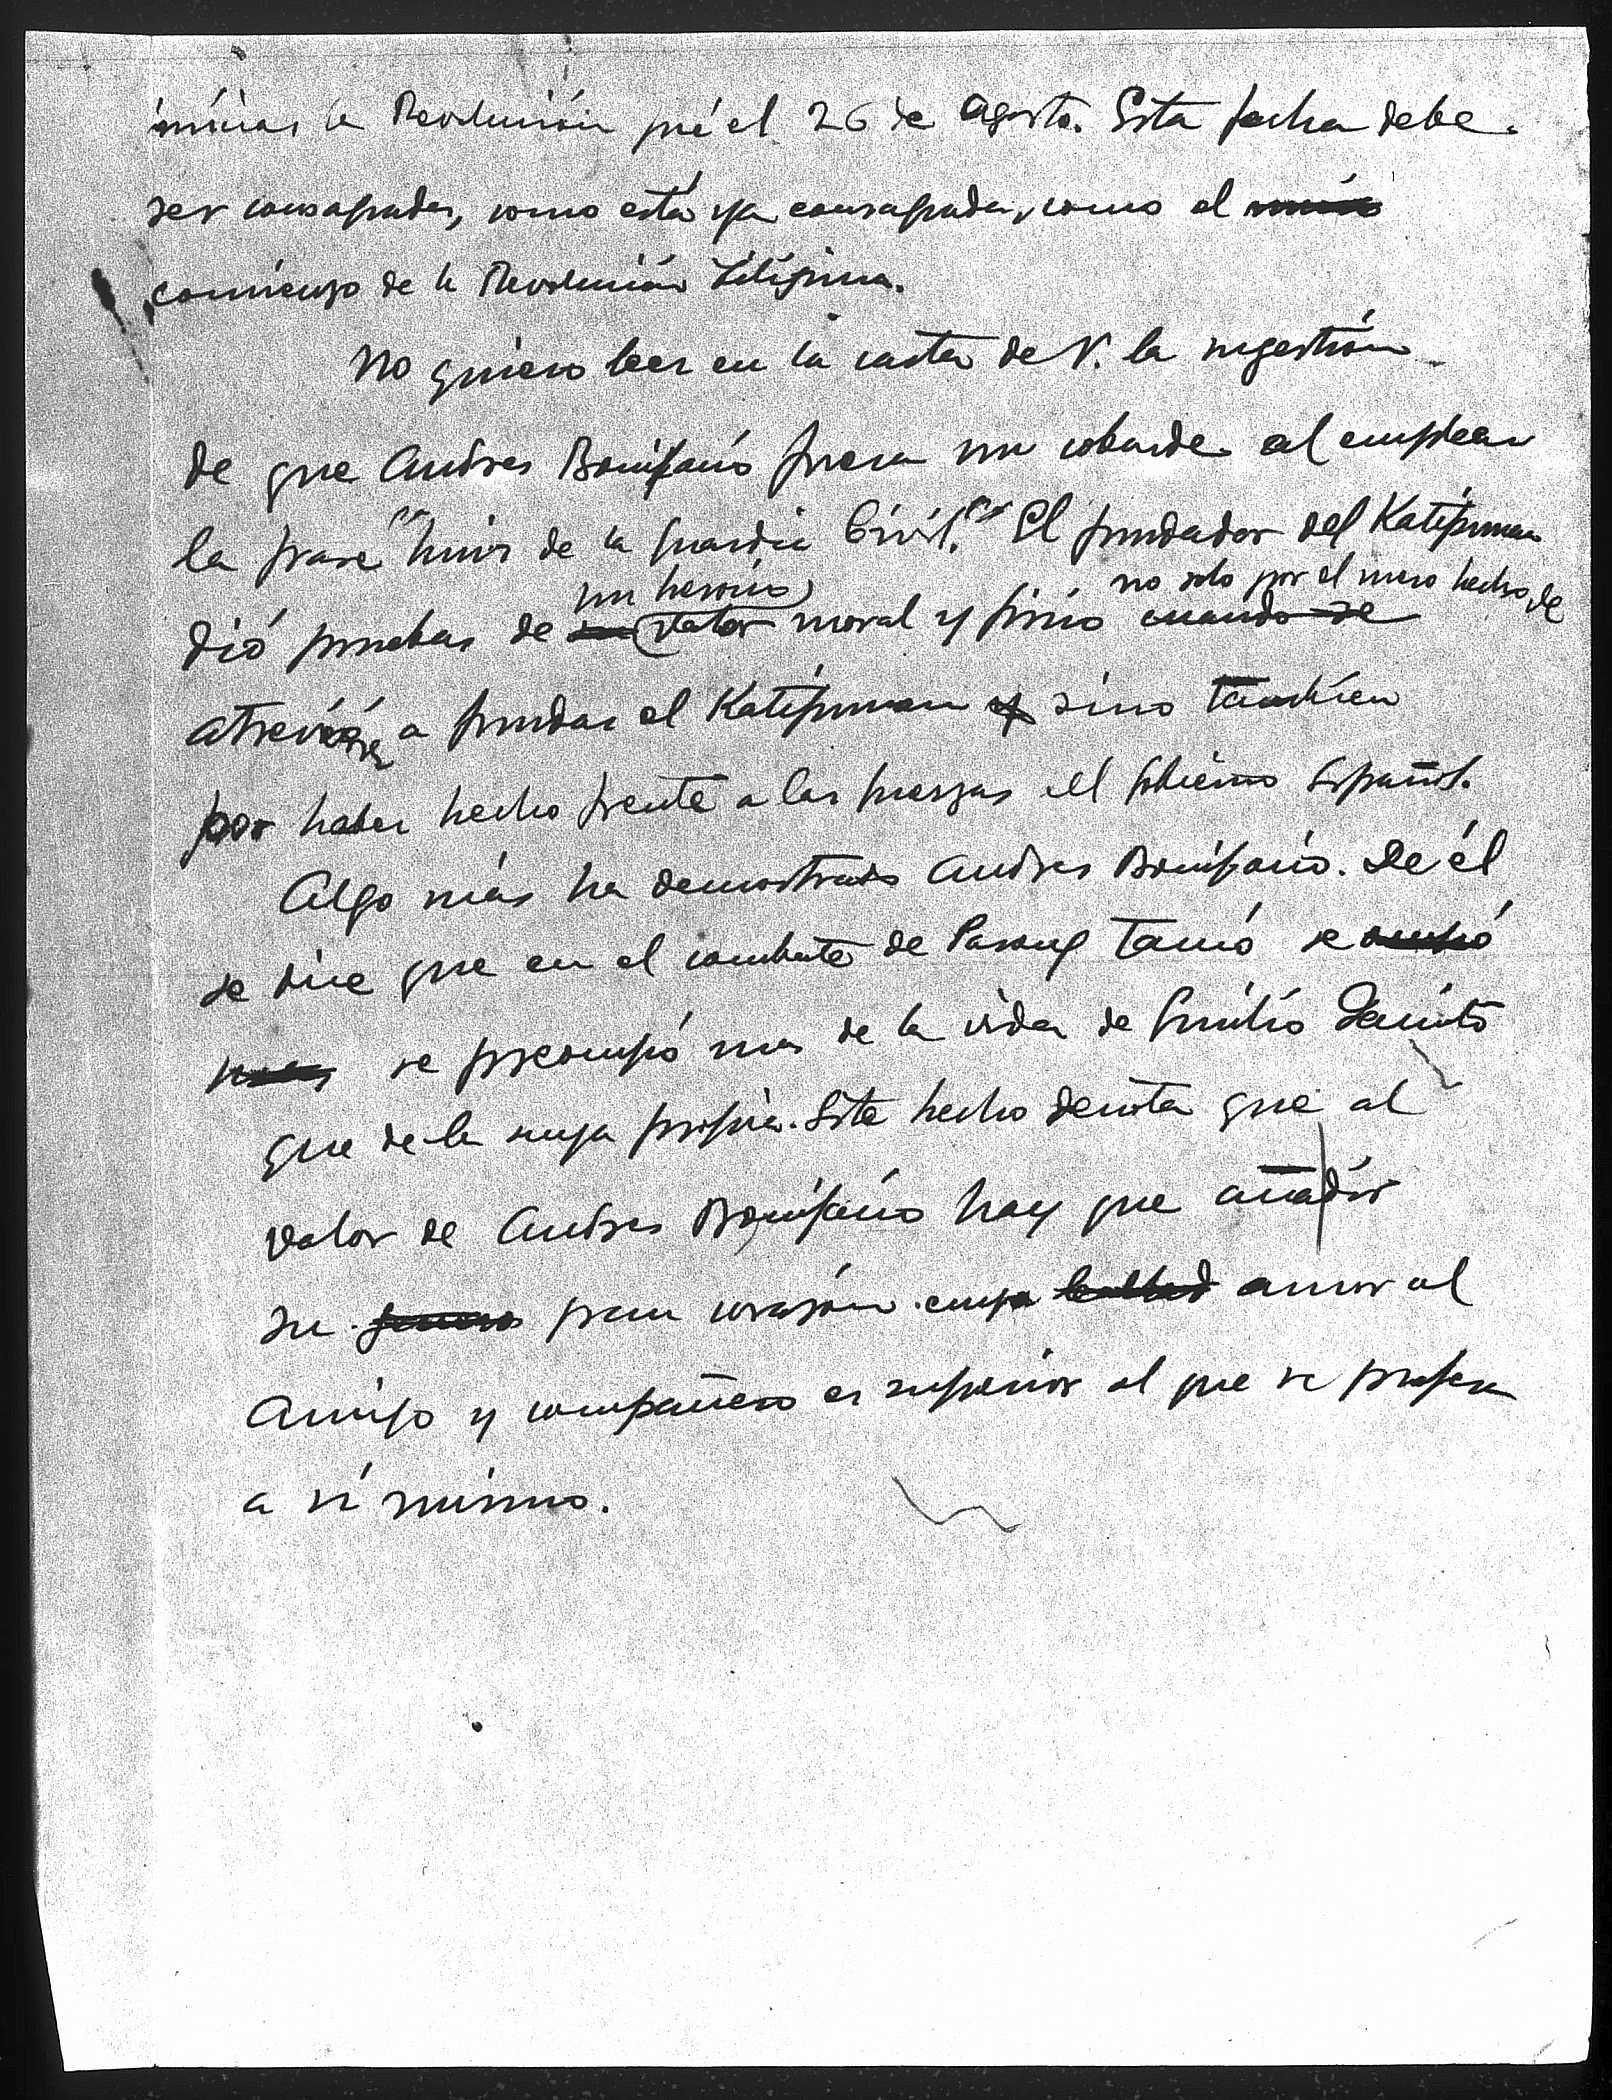 iniciar la Revolución fué el 26 de Agosto. Esta fecha debe
ser consagrada, como está ya consagrada, como el
comienzo de la Revolución Filipina.
No quiero leer en la carta de V. la sugestión
de que Andres Bonifacio fuera un cobarde al emplear
la frase "huir de la Guardia Civil." El fundador del Katipunan
un heroico no solo por el mero hecho de
dió pruebas de valor moral y físico cuando se
atreverse a fundar el Katipunan y sino también
por haber hecho frente a las fuerzas del Gobierno Español.
Algo más ha demostrado Andres Bonifacio. De él
se dice que en el combate de Pasong Tamó se ocupó
mas se preocupó mas de la vida de Emilio Jacinto
que de la suya propia. Este hecho denota que al
valor de Andres Bonifacio hay que añadir
su gran corazón cuyo lealtad amor al
amigo y compañero es superior al que se profesa
a sí mismo.